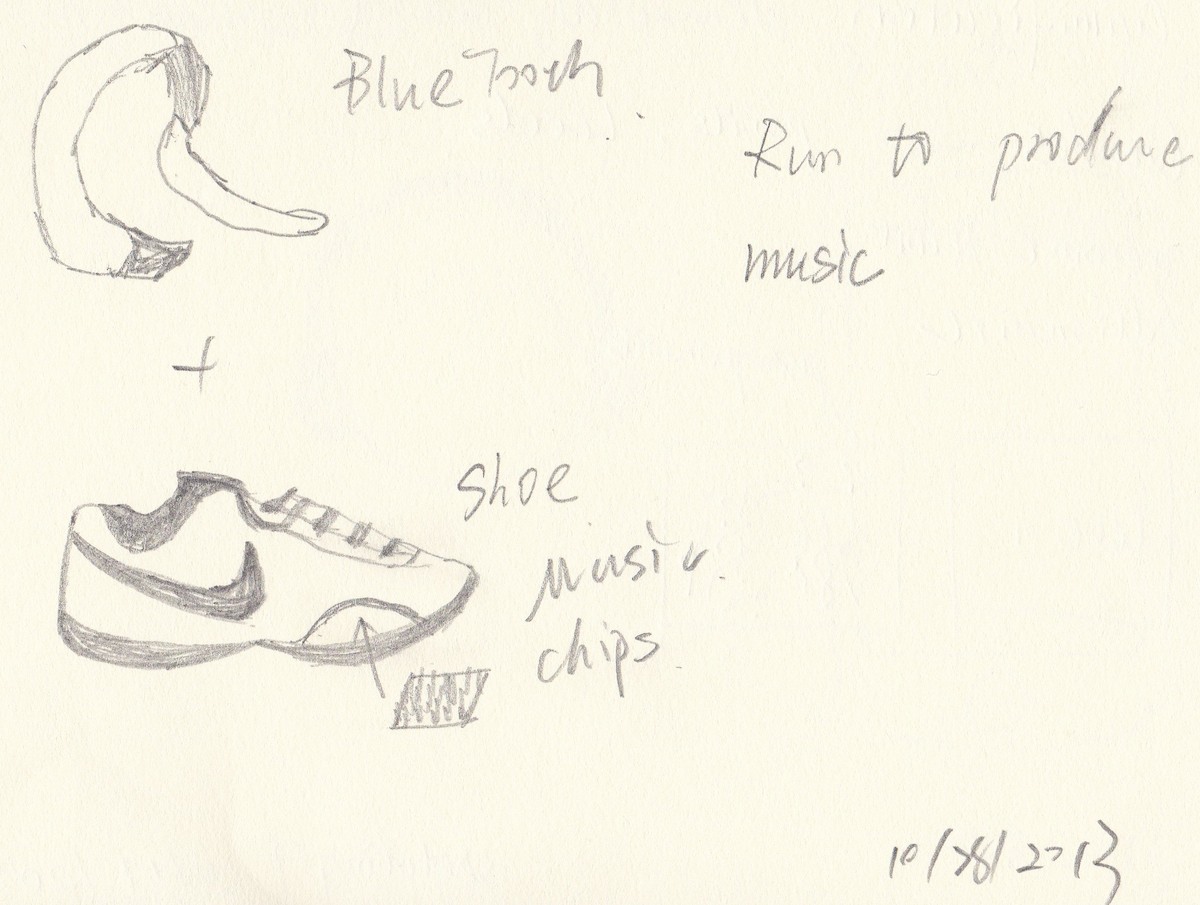 Blue Tooth
Run to produce
music
+
Shoe
music
chips
10/28/2013